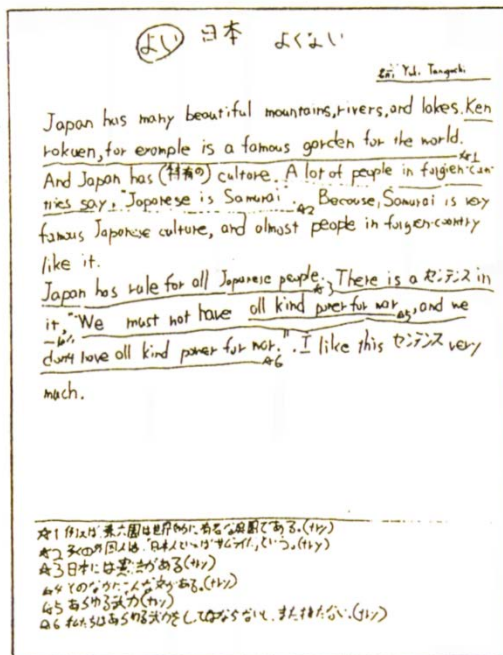 よい 日本 よくない
Yuki Taniguchi
Japan has many beautiful mountains, rivers, and lakes. Ken
rokuen, for example is a famous garden for the world.
☆1
And Japan has (特有の) culture. A lot of people in forgien-coun
tries say, "Japanese is Samurai". Because, Samurai is very
☆2
famous Japanese culture, and almost people in forgen-country
like it.
Japan has rule for all Japanese people. There is a センテンス in
☆3
it, "We must not have all kind power for war, and we
☆4 ☆5
don't have all kind power for war.". I like this センテンス very
☆6
much.
☆1 例えば、兼六園は世界的に有名な庭園である。(ナレン)
☆2 多くの外国人は、日本人といえばサムライだ、という。(ナレン)
☆3 日本には憲法がある(ナレン)
☆4 そのなかにこんな文がある。(ナレン)
☆5 あらゆる武力(ナレン)
☆6 私たちはあらゆる武力をしてはならないと、また持たない。(ナレン)